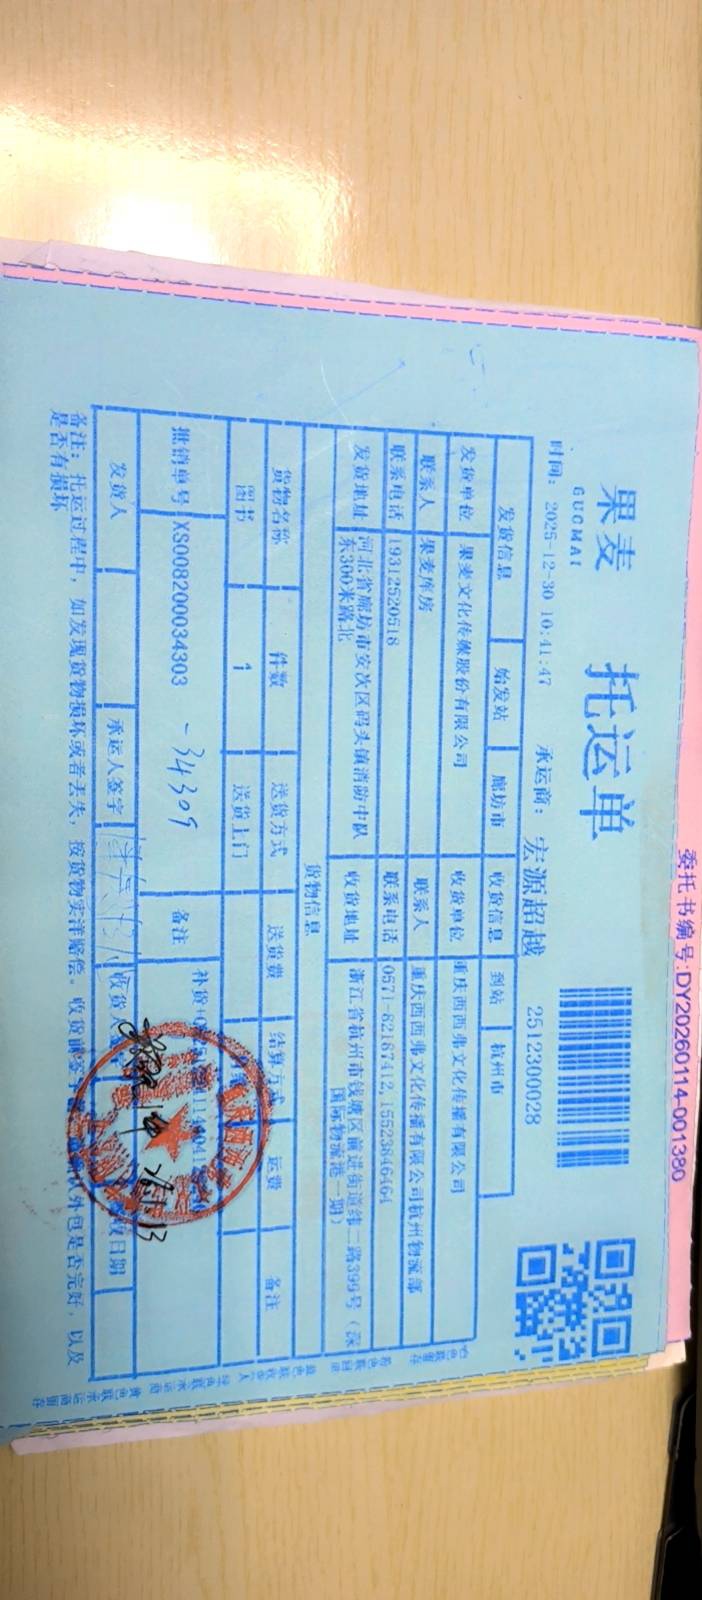 委托书编号:DY20260114-001380
果麦
GUOMAI
托运单
时间: 2025-12-30 10:41:47
承运商: 宏源超越
2512300028
发货信息 始发站 廊坊市 收货信息 到站 杭州市
发货单位 果麦文化传媒股份有限公司 收货单位 重庆西西弗文化传播有限公司
联系人 果麦库房 联系人 重庆西西弗文化传播有限公司杭州物流部
联系电话 19312520518 联系电话 0571-82187412,15523846464
发货地址 河北省廊坊市安次区码头镇消防中队东300米路北 收货地址 浙江省杭州市钱塘区前进街道纬二路399号(深国际物流港一期)
货物信息
货物名称 件数 送货方式 送货费 结算方式 运费 备注
图书 1 送货上门
批销单号 XS008200034303 -34309 备注 补货
发货人 承运人签字 收货人 日期
备注: 托运过程中, 如发现货物损坏或者丢失, 按货物实洋赔偿。收货前
外包是否完好, 以及
是否有损坏